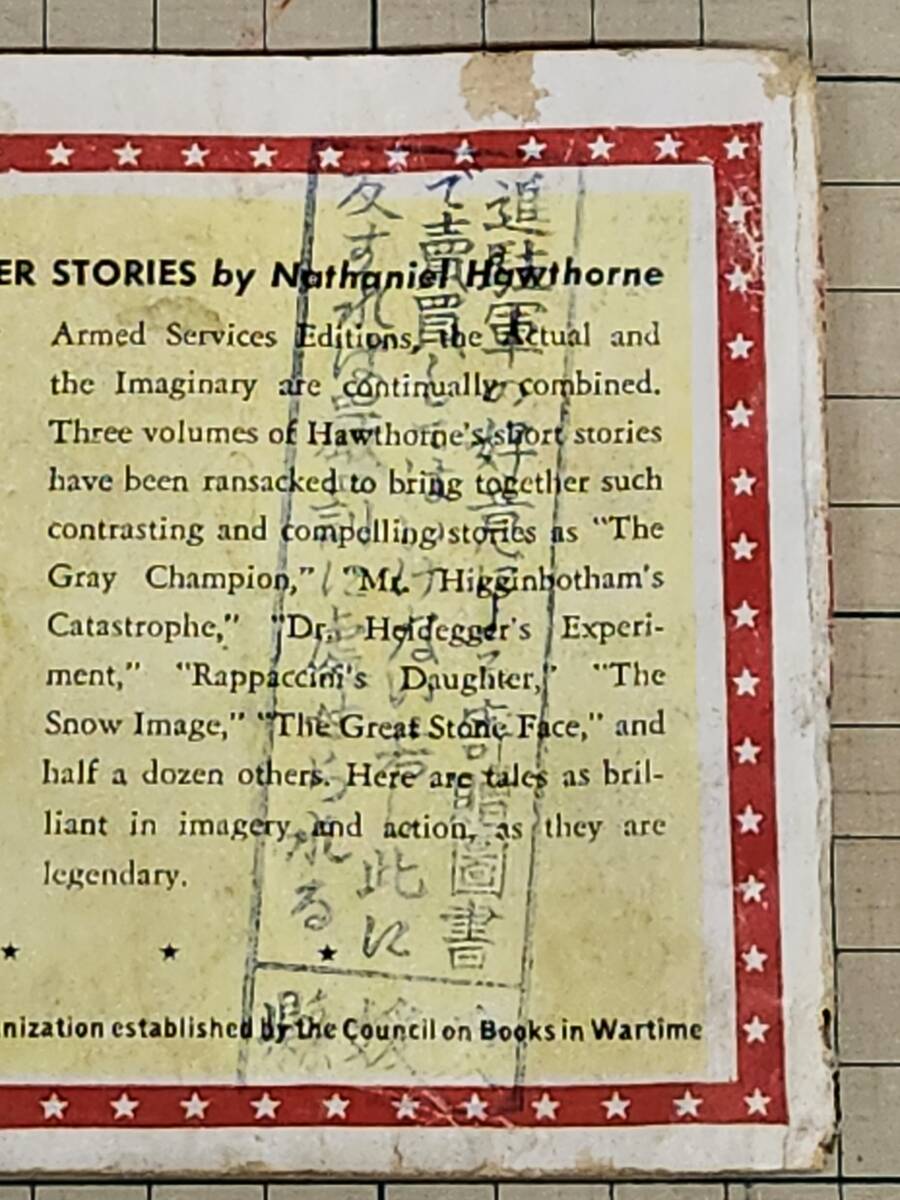 ER STORIES by Nathaniel Hawthorne
Armed Services Editions, the Actual and
the Imaginary are continually combined.
Three volumes of Hawthorne's short stories
have been ransacked to bring together such
contrasting and compelling stories as "The
Gray Champion," "Mr. Higginbotham's
Catastrophe," "Dr. Heidegger's Experi-
ment," "Rappaccini's Daughter," "The
Snow Image," "The Great Stone Face," and
half a dozen others. Here are tales as bril-
liant in imagery and action, as they are
legendary.
nization established by the Council on Books in Wartime
進駐軍の好意に寄贈圖書
で賣買してはいけない 此に
反すれば嚴罰に處せられる
縣